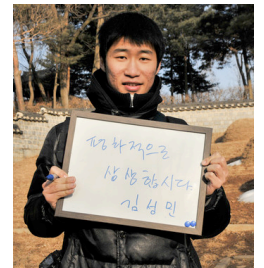 평화적으로
상생합시다.
김성민